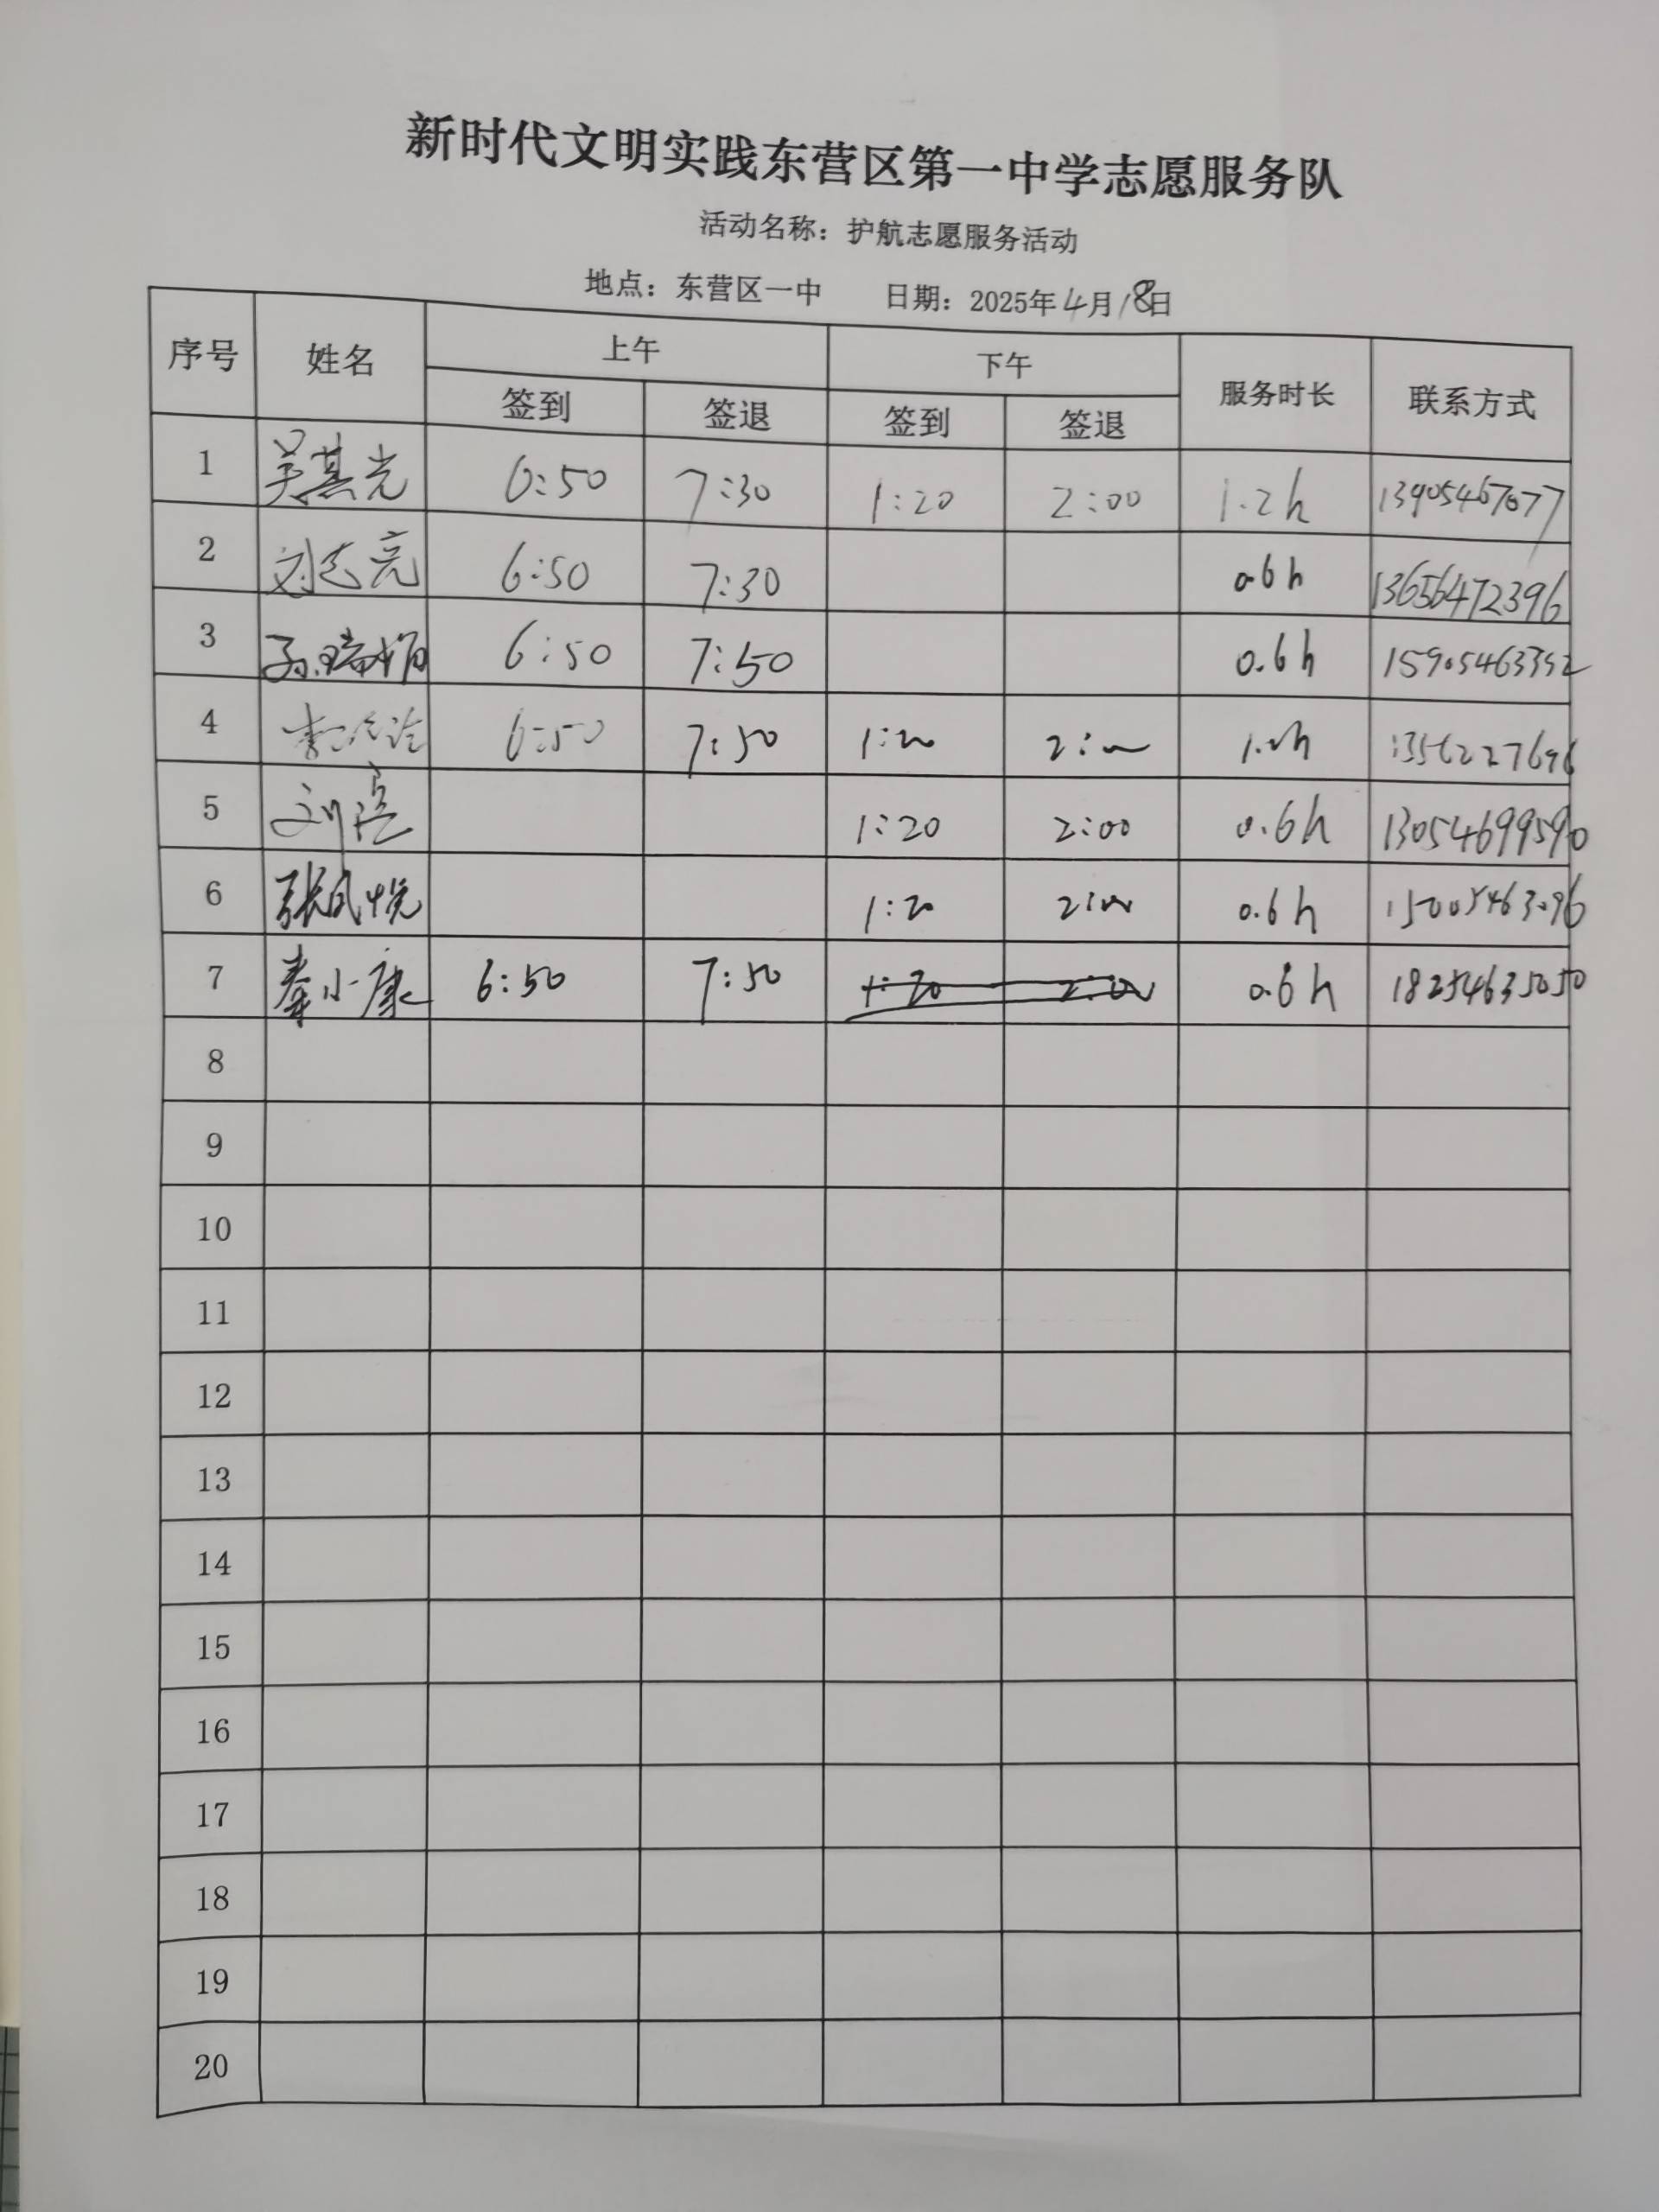 新时代文明实践东营区第一中学志愿服务队
活动名称：护航志愿服务活动
地点：东营区一中 日期：2025年4月18日
序号 姓名 上午 下午 服务时长 联系方式
签到 签退 签到 签退
1 吴其光 6:50 7:30 1:20 2:00 1.2h 13905467077
2 刘志亮 6:50 7:30 0.6h 13656472396
3 孙瑞娟 6:50 7:50 0.6h 15905463352
4 6:50 7:50 1:20 2:00
5 刘 1:20 2:00 0.6h 13054699590
6 张凤悦 1:20 2:00 0.6h 15005463096
7 秦小康 6:50 7:50 1:20 2:00 0.6h 18254635050
8
9
10
11
12
13
14
15
16
17
18
19
20